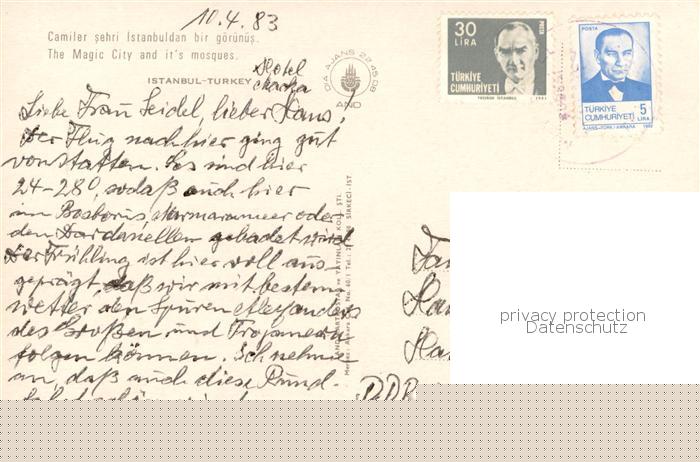 10.4.83
Camiler şehri İstanbuldan bir görünüş.
The Magic City and it's mosques.
ISTANBUL-TURKEY
Hotel
AJANS 22 45 08
AND
Liebe Frau Seidel, lieber Hans,
der Flug nach hier ging gut
vonstatten. Es sind hier
24-28°, sodaß auch hier
im Bosborus, Marmarameer oder
den Dardanellen gebadet wird
Der Frühling ist hier voll aus-
geprägt, daß wir mit bestem
Wetter den Spuren Alexanders
des Großen und Trojanern
folgen können. Ich nehme
an, daß auch diese Rund-
30
LİRA
POSTA
TÜRKİYE
CUMHURİYETİ
POSTA
TÜRKİYE
CUMHURİYETİ
5
LİRA
AJANS-TÜRK/ANKARA 1982
DDR
privacy protection
Datenschutz